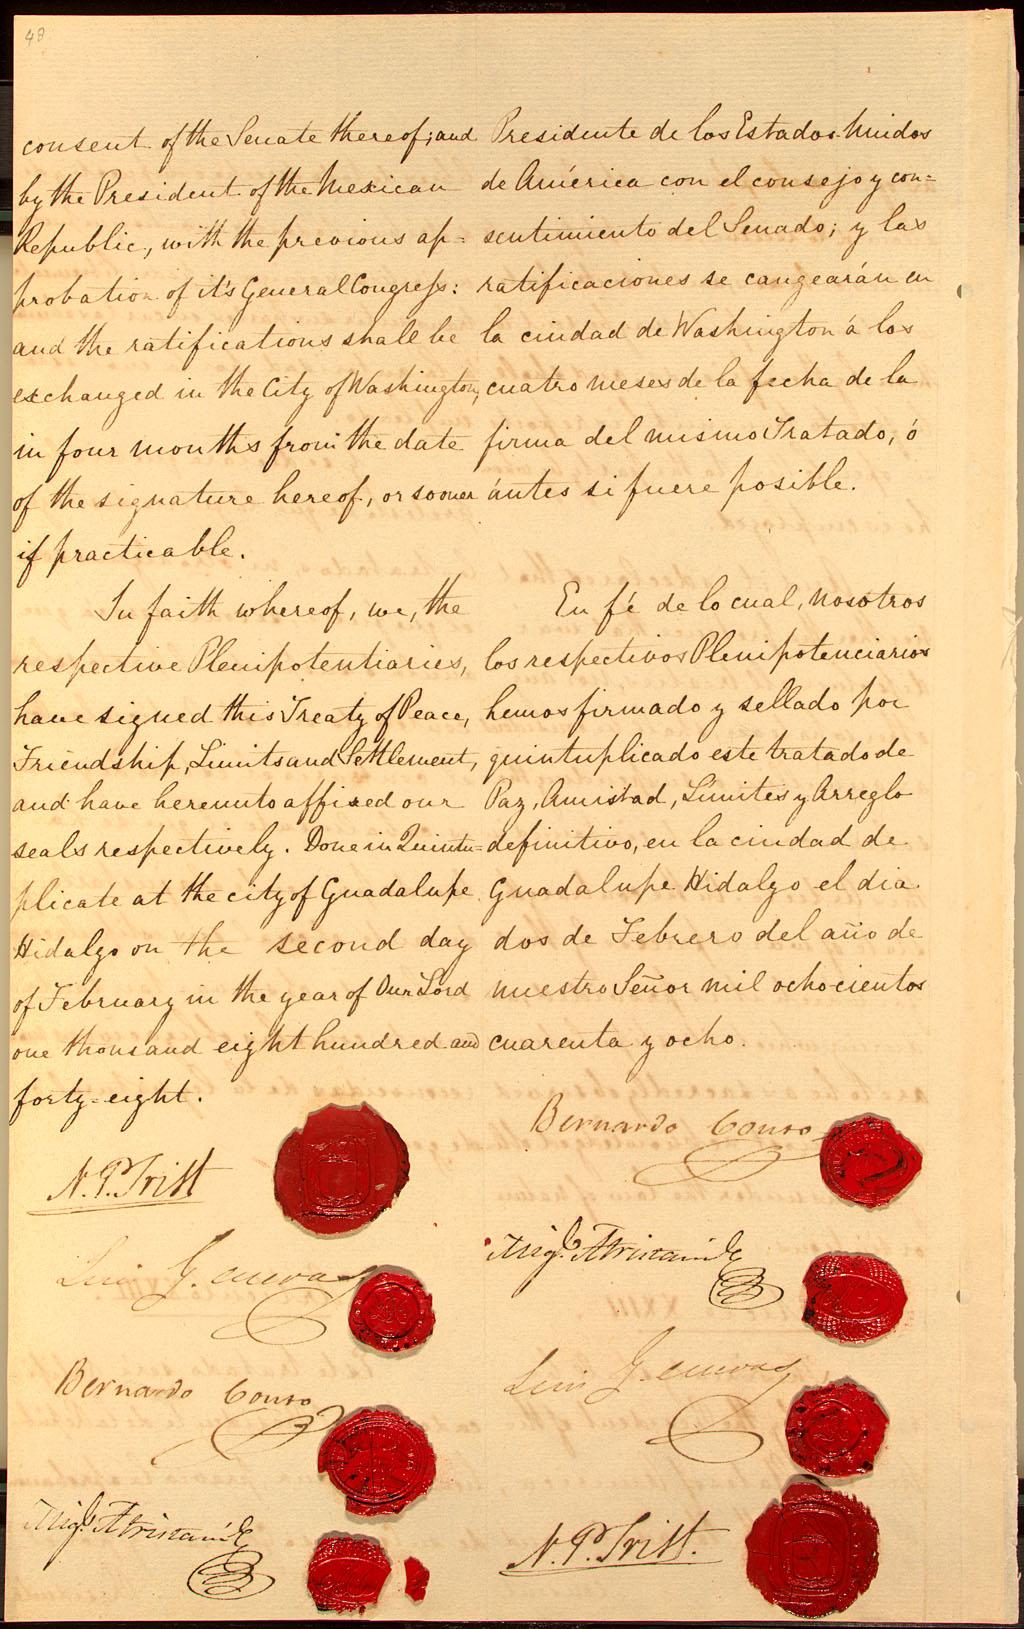 48
consent of the Senate thereof; and
by the President of the Mexican
Republic, with the previous ap=
probation of it's General Congress:
and the ratifications shall be
exchanged in the City of Washington,
in four months from the date
of the signature hereof, or sooner
if practicable.
In faith whereof, we, the
respective Plenipotentiaries,
have signed this Treaty of Peace,
Friendship, Limits and Settlement,
and have hereunto affixed our
seals respectively. Done in Quintu=
plicate at the city of Guadalupe
Hidalgo on the second day
of February in the year of Our Lord
one thousand eight hundred and
forty-eight.
N. P. Trist
Luis G. Cuevas
Bernardo Couto
Migl. Atristain
Presidente de los Estados Unidos
de América con el consejo y con=
sentimiento del Senado; y las
ratificaciones se cangearán en
la ciudad de Washington á los
cuatro meses de la fecha de la
firma del mismo Tratado, ó
ántes si fuere posible.
En fé de lo cual, nosotros
los respectivos Plenipotenciarios
hemos firmado y sellado por
quintuplicado este tratado de
Paz, Amistad, Límites y Arreglo
definitivo, en la ciudad de
Guadalupe Hidalgo el dia
dos de Febrero del año de
nuestro Señor mil ochocientos
cuarenta y ocho.
Bernardo Couto
Migl. Atristain
Luis G. Cuevas
N. P. Trist.